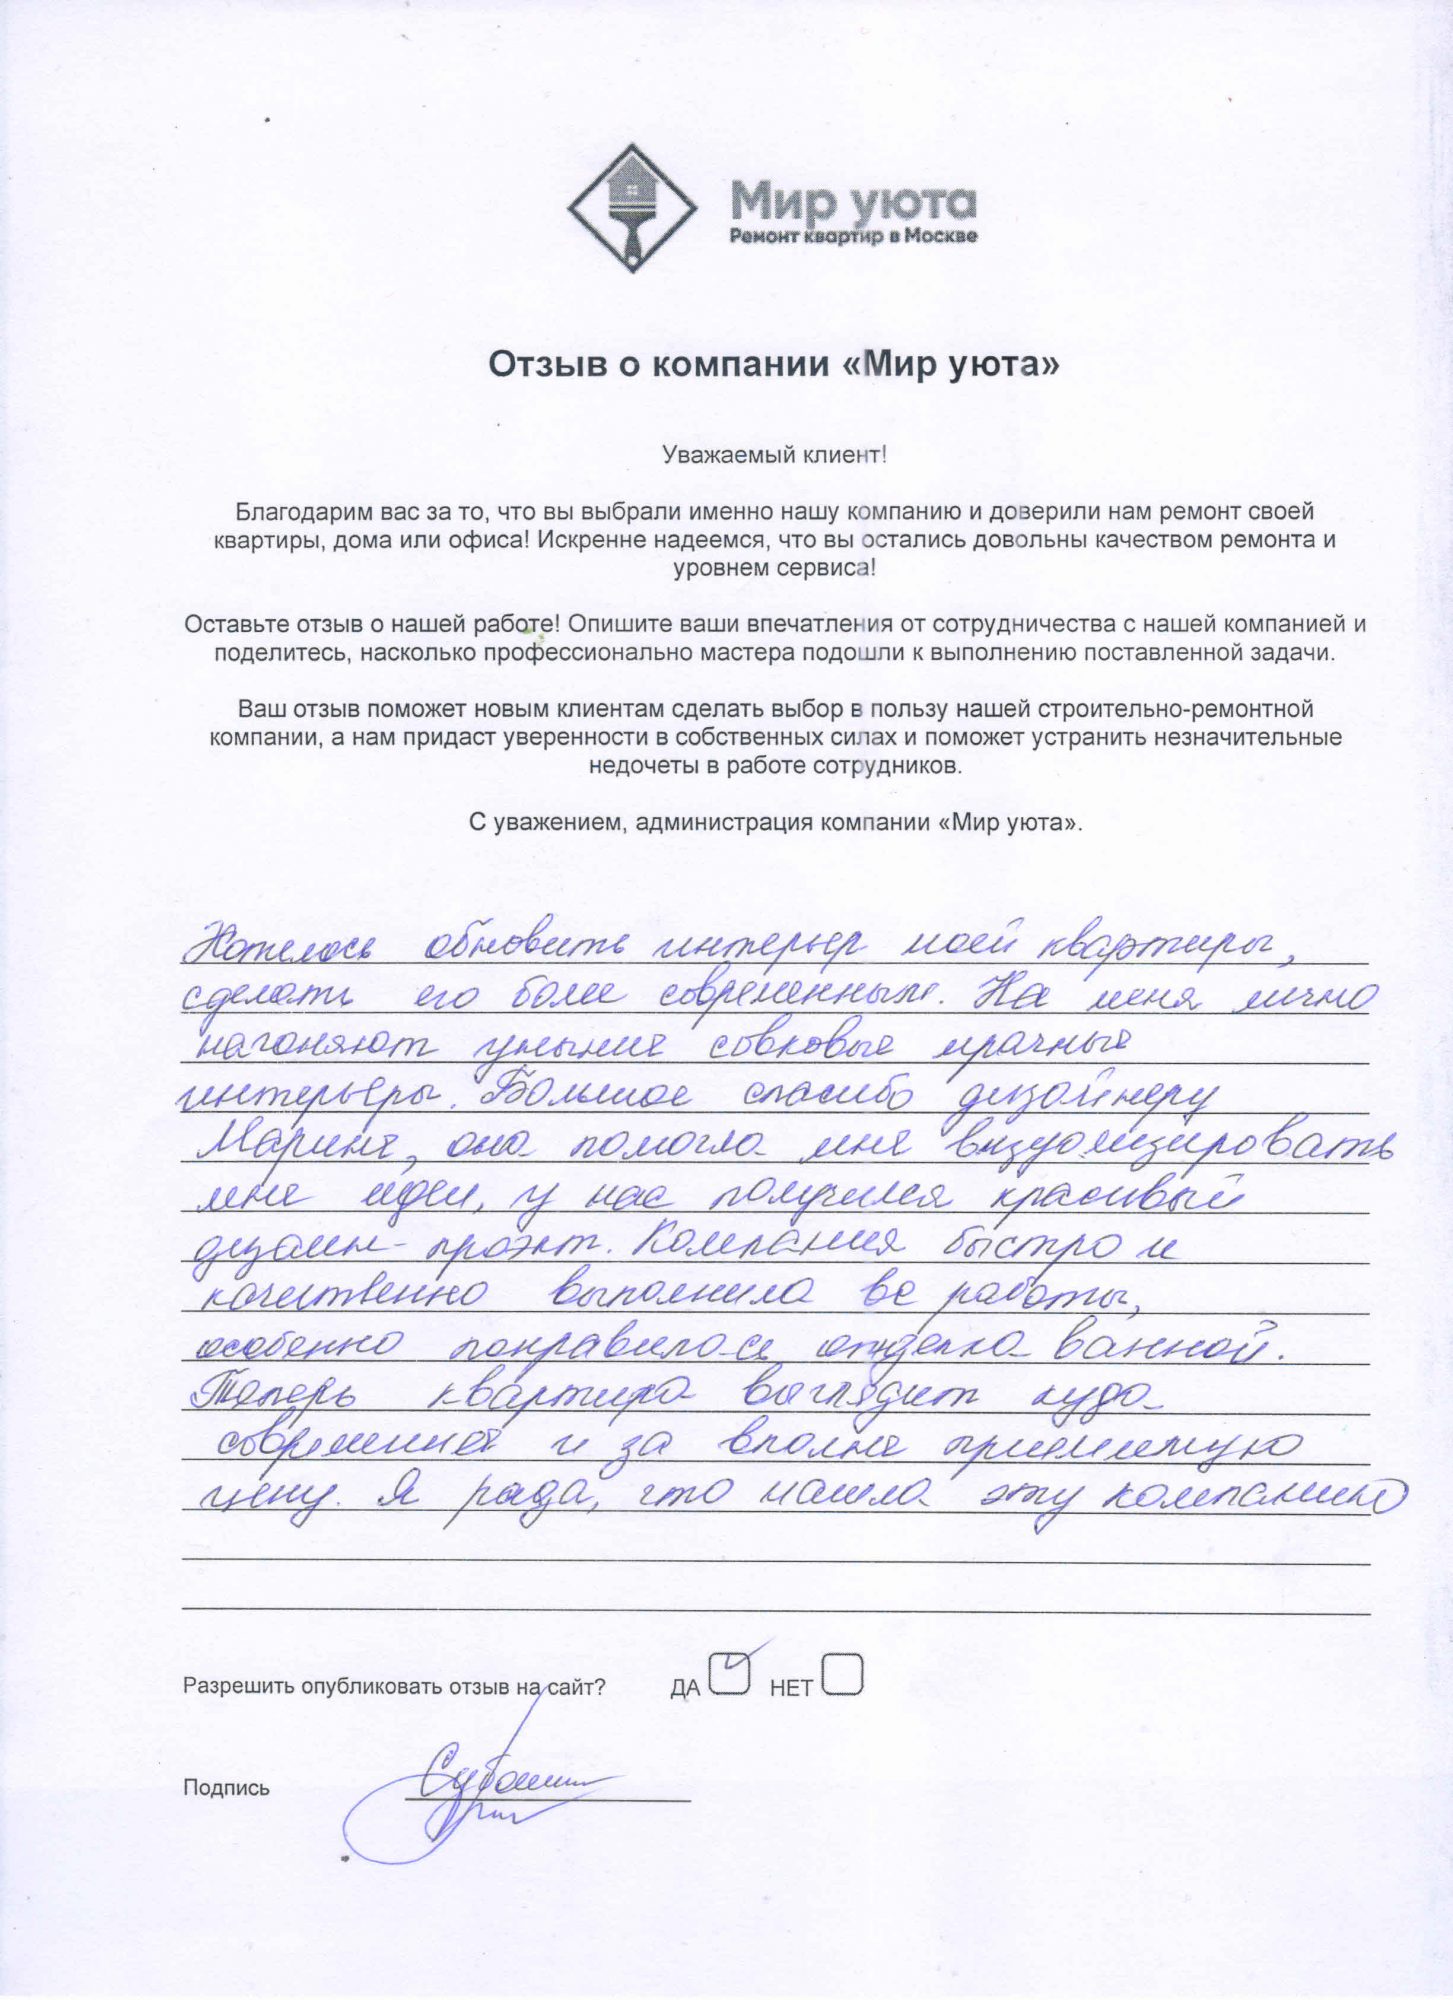 Мир уюта
Ремонт квартир в Москве
Отзыв о компании «Мир уюта»
Уважаемый клиент!
Благодарим вас за то, что вы выбрали именно нашу компанию и доверили нам ремонт своей
квартиры, дома или офиса! Искренне надеемся, что вы остались довольны качеством ремонта и
уровнем сервиса!
Оставьте отзыв о нашей работе! Опишите ваши впечатления от сотрудничества с нашей компанией и
поделитесь, насколько профессионально мастера подошли к выполнению поставленной задачи.
Ваш отзыв поможет новым клиентам сделать выбор в пользу нашей строительно-ремонтной
компании, а нам придаст уверенности в собственных силах и поможет устранить незначительные
недочеты в работе сотрудников.
С уважением, администрация компании «Мир уюта».
Хотелось обновить интерьер моей квартиры,
сделать его более современным. На меня лично
нагоняют уныние совковые мрачные
интерьеры. Большое спасибо дизайнеру
Марине, она помогла мне визуализировать
мне идеи, у нас получился красивый
дизайн-проэкт. Компания быстро и
качественно выполнила все работы,
особенно понравилась отделка ванной.
Теперь квартира выглядит куда
современнее и за вполне приемлемую
цену. Я рада, что нашла эту компанию
Разрешить опубликовать отзыв на сайт? ДА НЕТ
Подпись